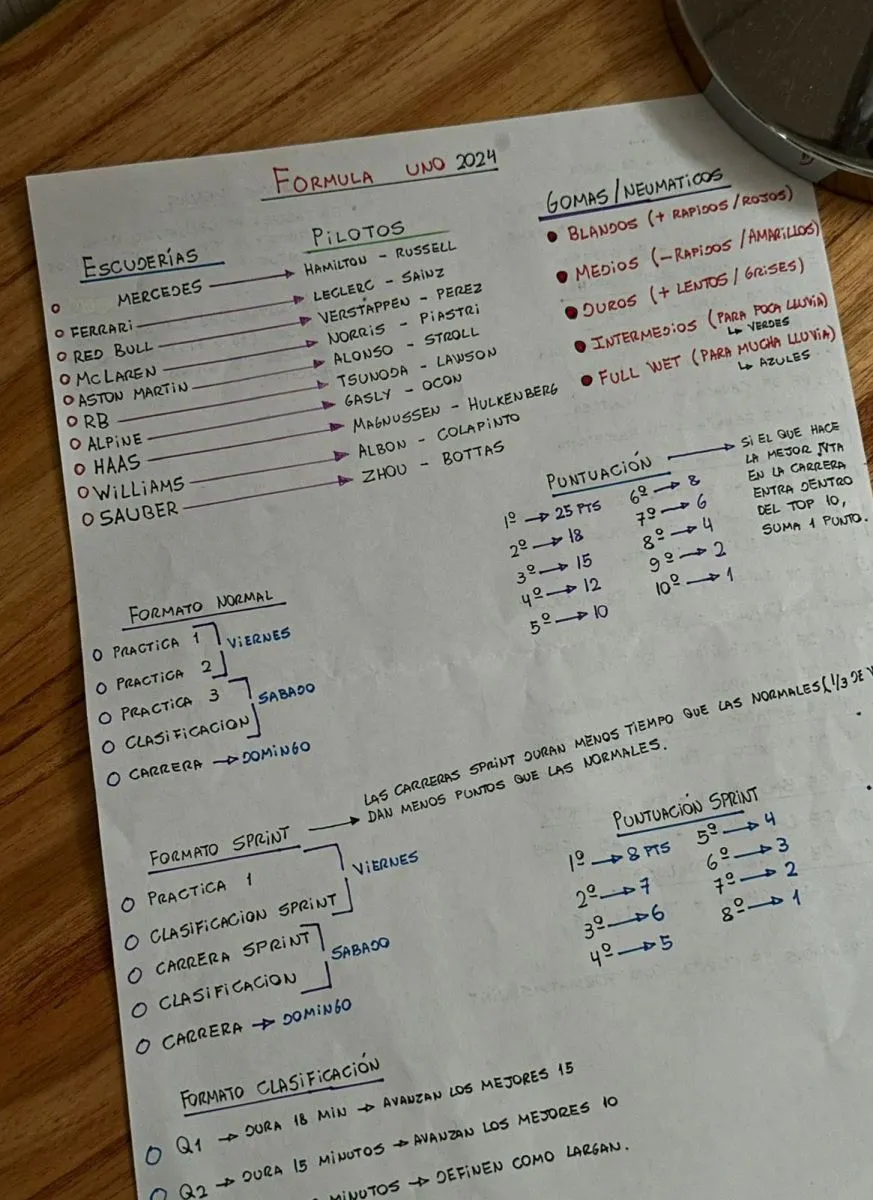 FORMULA UNO 2024
ESCUDERÍAS
PILOTOS
MERCEDES → HAMILTON - RUSSELL
FERRARI → LECLERC - SAINZ
RED BULL → VERSTAPPEN - PEREZ
MCLAREN → NORRIS - PIASTRI
ASTON MARTIN → ALONSO - STROLL
RB → TSUNODA - LAWSON
ALPINE → GASLY - OCON
HAAS → MAGNUSSEN - HULKENBERG
WILLIAMS → ALBON - COLAPINTO
SAUBER → ZHOU - BOTTAS
GOMAS/NEUMATICOS
BLANDOS (+ RAPIDOS/ROJOS)
MEDIOS (- RAPIDOS/AMARILLOS)
DUROS (+ LENTOS/GRISES)
INTERMEDIOS (PARA POCA LLUVIA)
↳ VERDES
FULL WET (PARA MUCHA LLUVIA)
↳ AZULES
PUNTUACIÓN →
1º → 25 PTS
2º → 18
3º → 15
4º → 12
5º → 10
6º → 8
7º → 6
8º → 4
9º → 2
10º → 1
SI EL QUE HACE
LA MEJOR VTA
EN LA CARRERA
ENTRA DENTRO
DEL TOP 10,
SUMA 1 PUNTO.
FORMATO NORMAL
PRACTICA 1
VIERNES
PRACTICA 2
PRACTICA 3
SABADO
CLASIFICACION
CARRERA → DOMINGO
FORMATO SPRINT →
LAS CARRERAS SPRINT DURAN MENOS TIEMPO QUE LAS NORMALES (1/3 DE
DAN MENOS PUNTOS QUE LAS NORMALES.
PRACTICA 1
VIERNES
CLASIFICACION SPRINT
CARRERA SPRINT
SABADO
CLASIFICACION
CARRERA → DOMINGO
PUNTUACIÓN SPRINT
1º → 8 PTS
2º → 7
3º → 6
4º → 5
5º → 4
6º → 3
7º → 2
8º → 1
FORMATO CLASIFICACIÓN
Q1 → DURA 18 MIN → AVANZAN LOS MEJORES 15
Q2 → DURA 15 MINUTOS → AVANZAN LOS MEJORES 10
MINUTOS → DEFINEN COMO LARGAN.